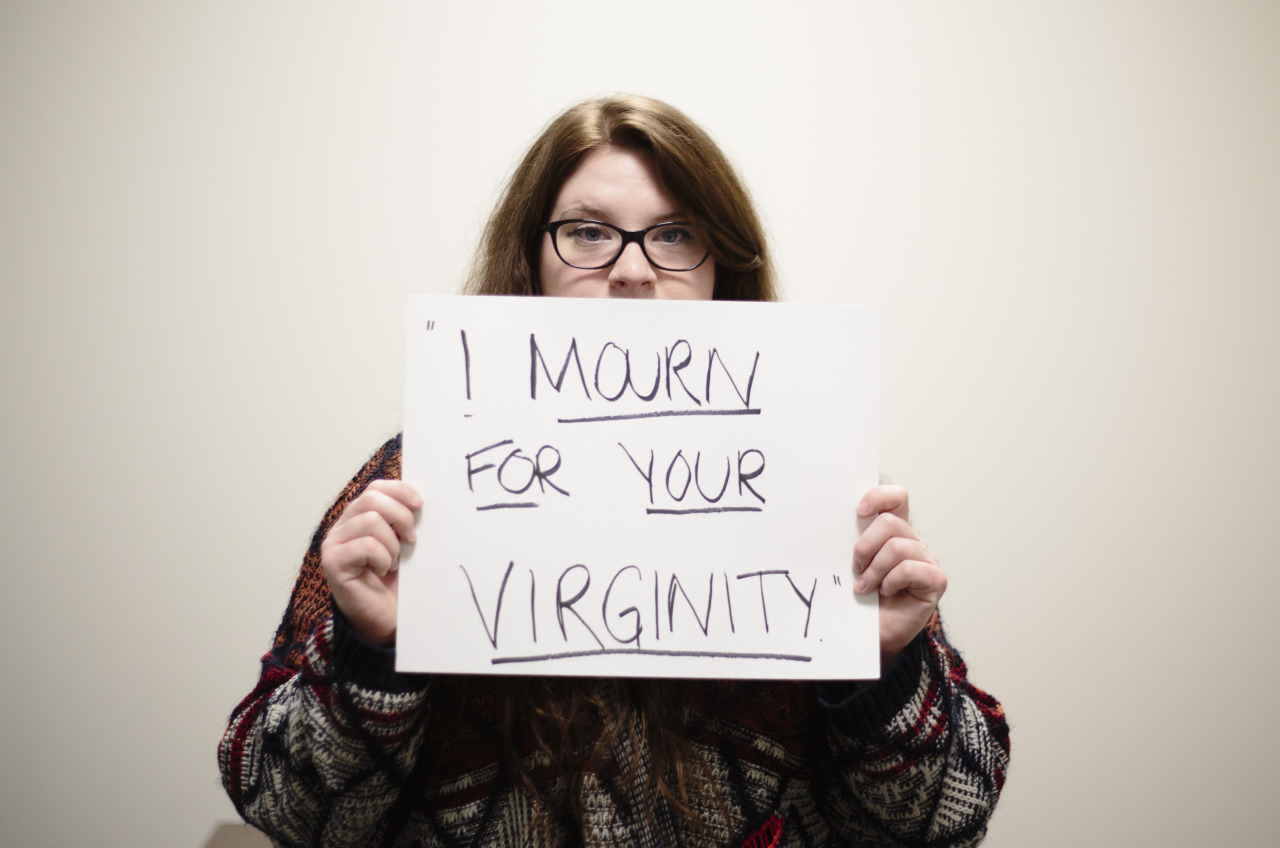 "I MOURN
FOR YOUR
VIRGINITY."